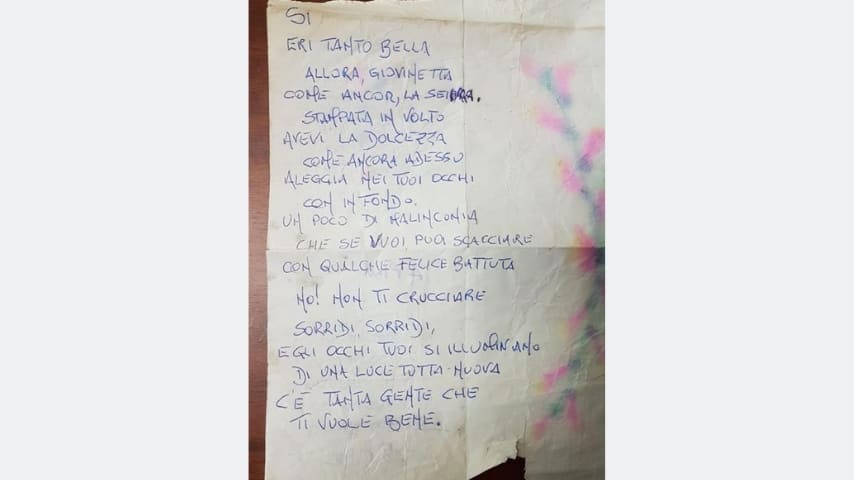 SI
ERI TANTO BELLA
ALLORA, GIOVINETTA
COME ANCOR, LA SEI
STAMPATA IN VOLTO
AVEVI LA DOLCEZZA
COME ANCORA ADESSO
ALEGGIA NEI TUOI OCCHI
CON IN FONDO.
UN POCO DI MALINCONIA
CHE SE VUOI PUOI SCACCIARE
CON QUALCHE FELICE BATTUTA
NO! NON TI CRUCCIARE
SORRIDI, SORRIDI,
E GLI OCCHI TUOI SI ILLUMINANO
DI UNA LUCE TUTTA NUOVA
C'È TANTA GENTE CHE
TI VUOLE BENE.